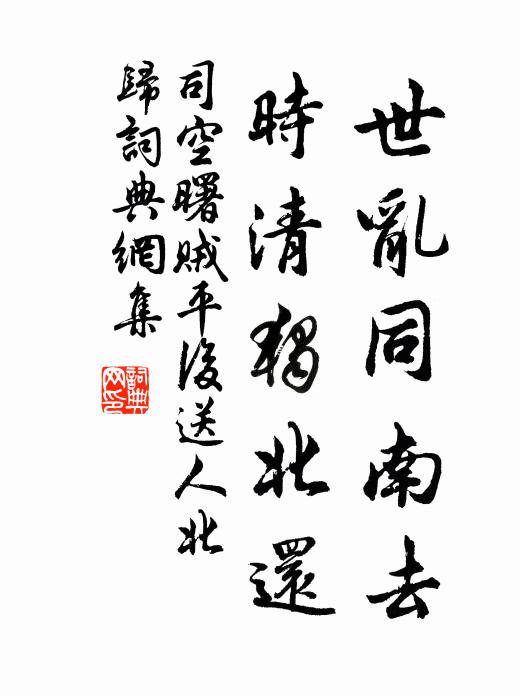 世亂同南去
時清獨北還
司空曙賊平後送人北
歸詞典網集
詞典
网印